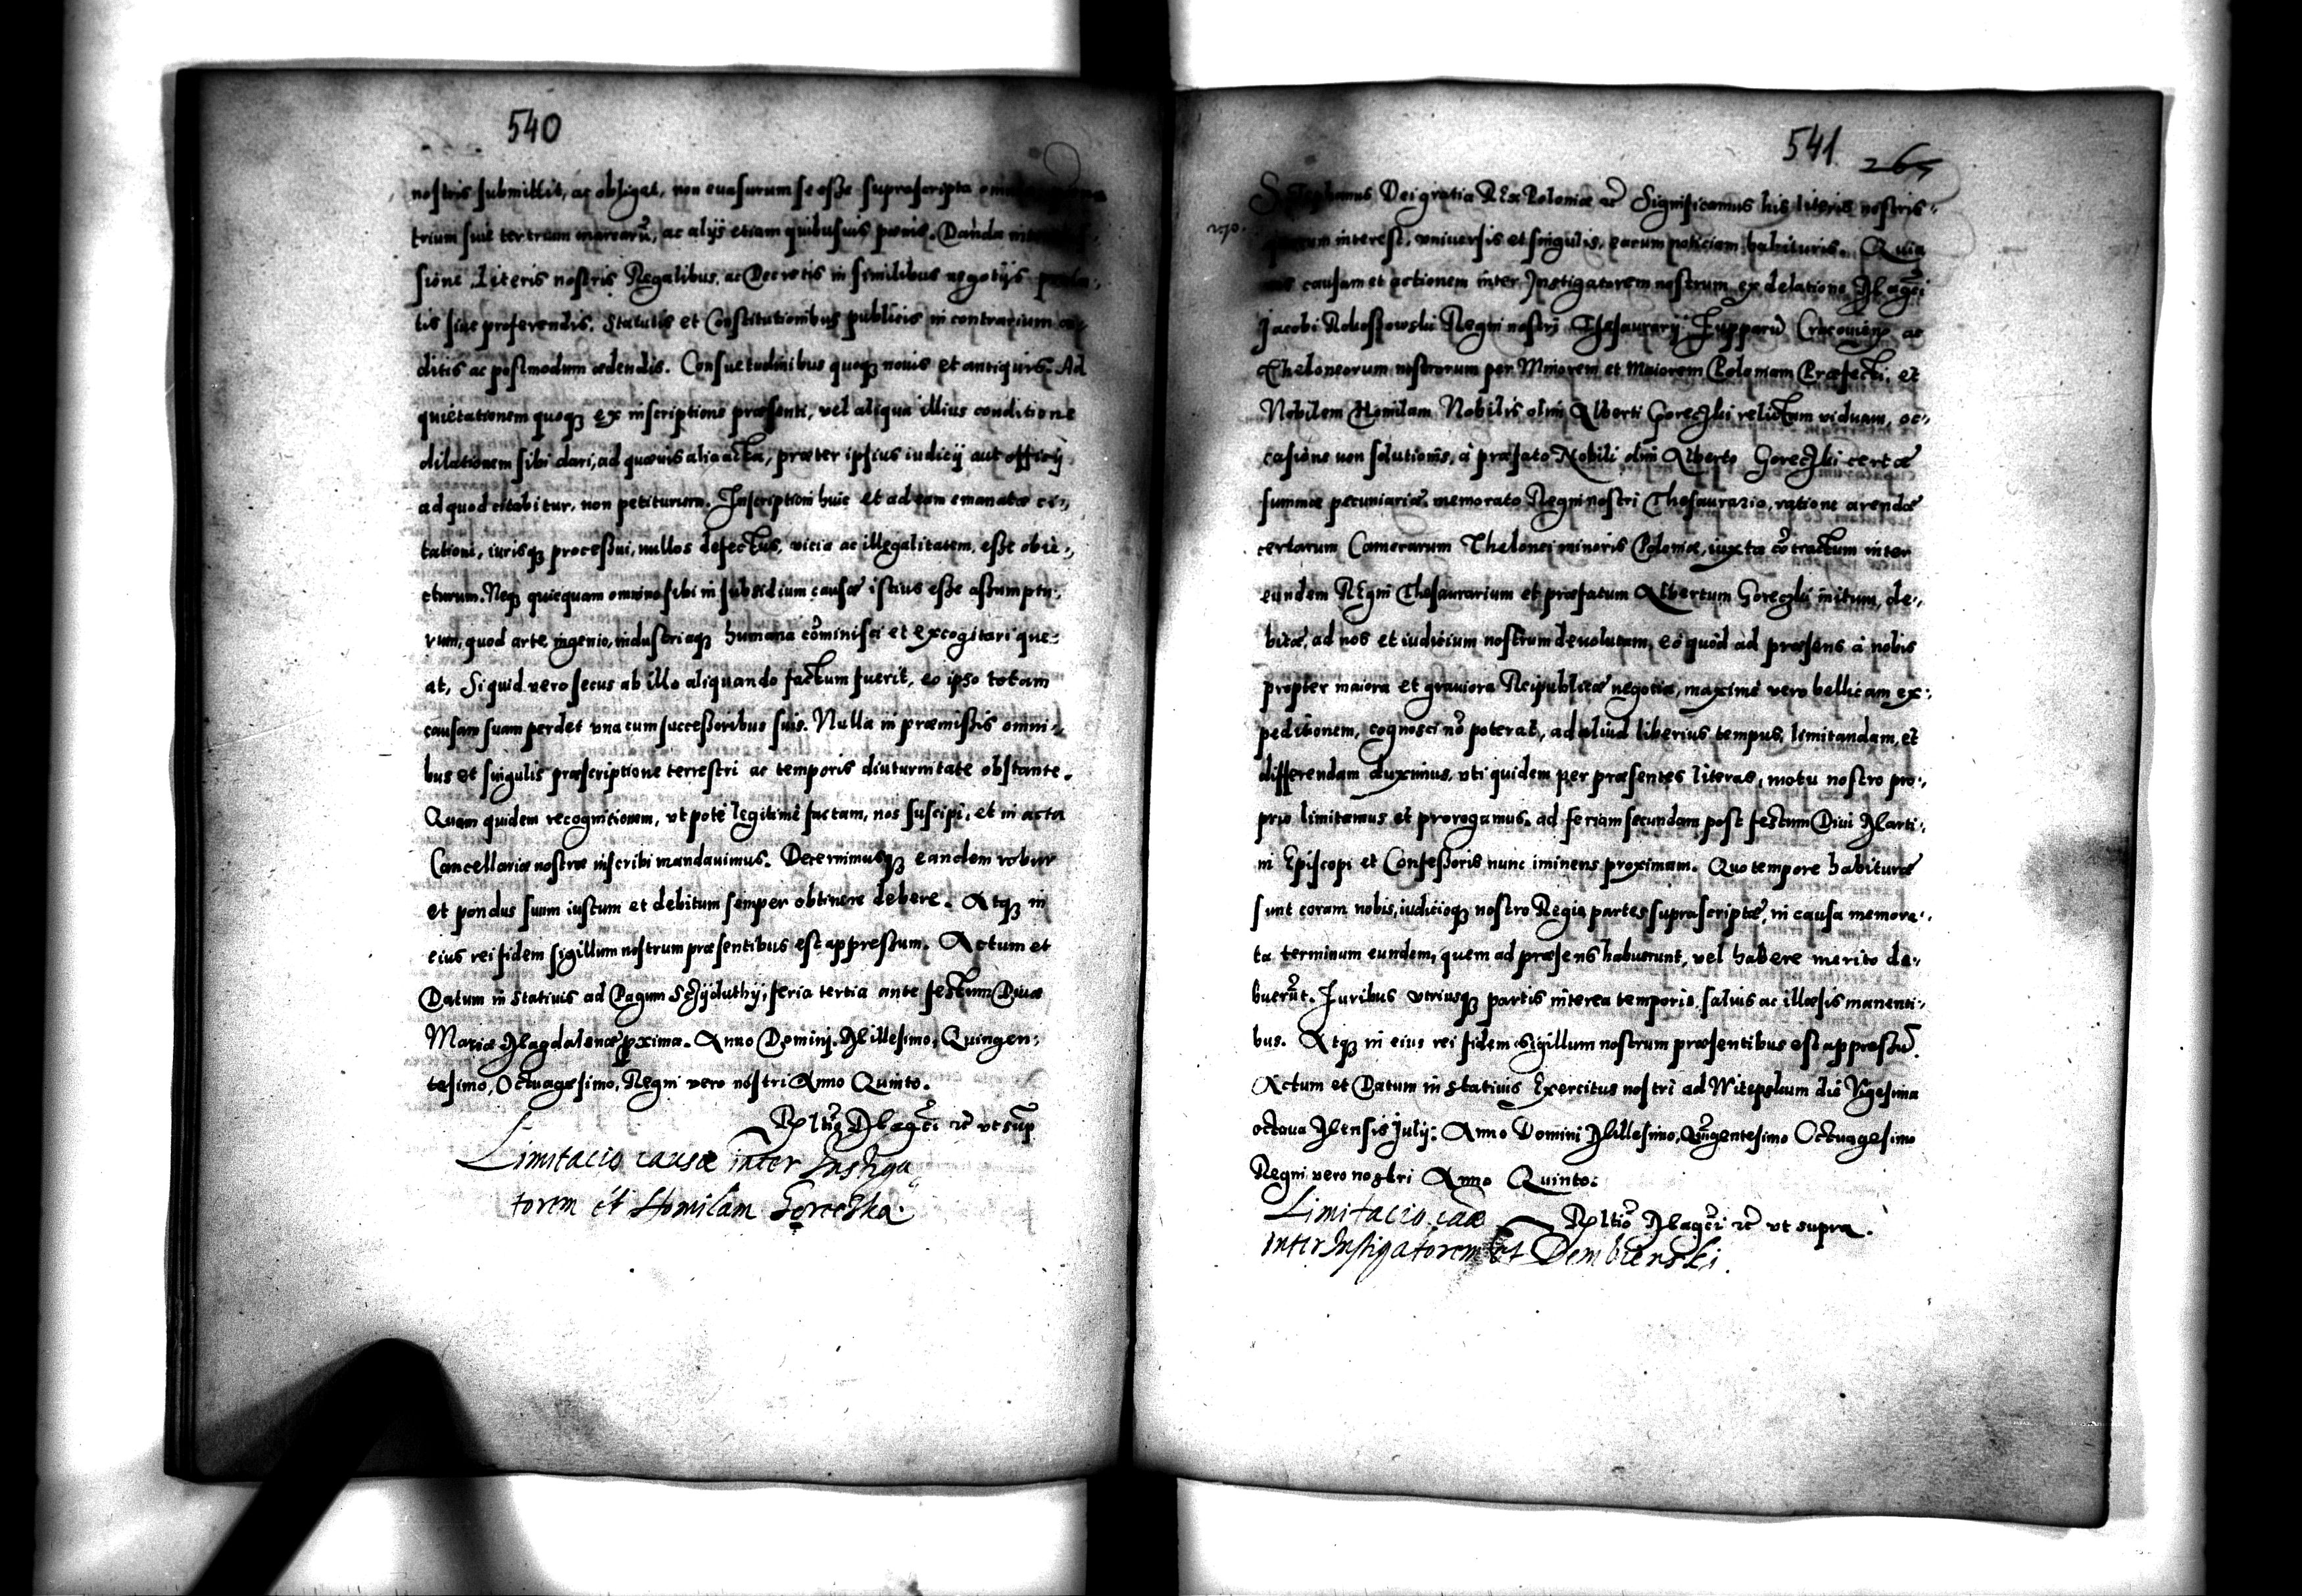 540
nostris submittit, ac obligat, non euasurum se esse suprascripta
trium siue terrarum marcarũ, ac alijs etiam quibusuis pœnis. Danda
sione Literis nostris Regalibus, ac Decretis in similibus negotijs
tis siue proferendis. Statutis et Constitutionibus publicis in contrarium
ditis ac postmodum ædendis. Consuetudinibus quoqꝫ nouis et antiquis. Ad
quietationem quoqꝫ ex inscriptione præsenti, vel aliqua illius conditione
dilationem sibi dari, ad quæuis alia acta, præter ipsius iudicij aut officij
ad quod citabitur, non petiturum. Inscriptioni huic et ad eam emanatæ ci-
tationi, iurisqꝫ processui, nullos defectus, vicia ac illegalitatem, esse obie-
cturum. Neqꝫ quicquam omnino sibi in subsidium causæ istius esse assumptu-
rum, quod arte, ingenio, industriaqꝫ humana cõminisci et excogitari que-
at, Si quid vero secus ab illo aliquando factum fuerit, eo ipso totam
causam suam perdet vna cum successoribus suis. Nulla in præmissis omni-
bus et singulis præscriptione terrestri ac temporis diuturnitate obstante.
Quam quidem recognitionem, vt potè legitimè factam, nos suscipi, et in acta
Cancellariæ nostræ inscribi mandauimus. Decernimusqꝫ eandem robur
et pondus suum iustum et debitum semper obtinere debere. Atqꝫ in
eius rei fidem sigillum nostrum præsentibus est appressum. Actum et
Datum in statiuis ad Pagum feria tertia ante festum Diuæ
Mariæ Magdalenæ pxima. Anno Domini Millesimo, Quingen-
tesimo, Octuagesimo, Regni vero nostri Anno Quinto.
Rltio Magci etc̃ vt sup
Limitacio causæ inter Instiga
torem et Homilam Goreczka
541
265
Stephanus Dei gratia Rex Poloniæ etc̃ Significamus his literis nostris
quorum interest, vniuersis et singulis, earum noticiam habituris. Quia
nos causam et actionem inter Instigatorem nostrum ex delatione Magci
Jacobi Rokossowski Regni nostri Thesaurarij Zupparũ Cracouien ac
Theloneorum nostrorum per Minorem et Maiorem Poloniam Præfecti, et
Nobilem Homilam Nobilis olim Alberti Goreczki relictam viduam, oc-
casione non solutionis, à præfato Nobili olim Alberto Goreczki certæ
summæ pecuniariæ memorato Regni nostri Thesaurario, ratione arendæ
certarum Camerarum Thelonei minoris Poloniæ, iuxta cõtractum inter
eundem Regni Thesaurarium et præfatum Albertum Goreczki initum, de-
bitæ, ad nos et iudicium nostrum deuolutam, eo quòd ad præsens à nobis
propter maiora et grauiora Reipublicæ negotia, maximè vero bellicam ex-
peditionem, cognosci nõ poterat, ad aliud liberius tempus, limitandam, et
differendam duximus, vti quidem per præsentes literas, motu nostro pro-
prio limitamus et prorogamus. ad feriam secundam post festum Diui Marti-
ni Episcopi et Confessoris nunc iminens proximam. Quo tempore habituræ
sunt coram nobis, iudicioqꝫ nostro Regio partes suprascriptæ, in causa memora-
ta terminum eundem, quem ad præsens habuerunt, vel habere merito de-
buerũt. Juribus vtriusqꝫ partis interea temporis, saluis ac illæsis manenti-
bus. Atqꝫ in eius rei fidem sigillum nostrum præsentibus est appressũ.
Actum et Datum in statiuis Exercitus nostri ad Witepskum die Vigesima
octaua Mensis Julij: Anno Domini Millesimo, Quingentesimo Octuagesimo
Regni vero nostri Anno Quinto.
Rltio Magci etc̃ vt supra.
Limitacio cãæ
inter Instigatorem et Dembienski.